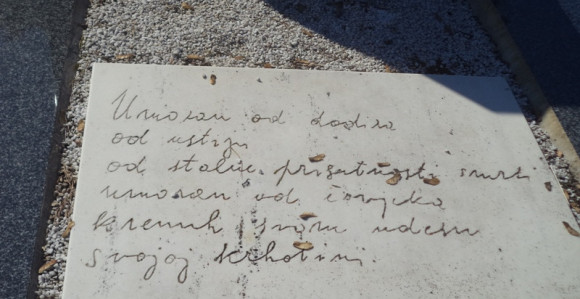 Umoran od dodira
od ustiju
od stalne prisutnosti smrti
umoran od čovjeka
krenuh svom udesu
svojoj krhotini.